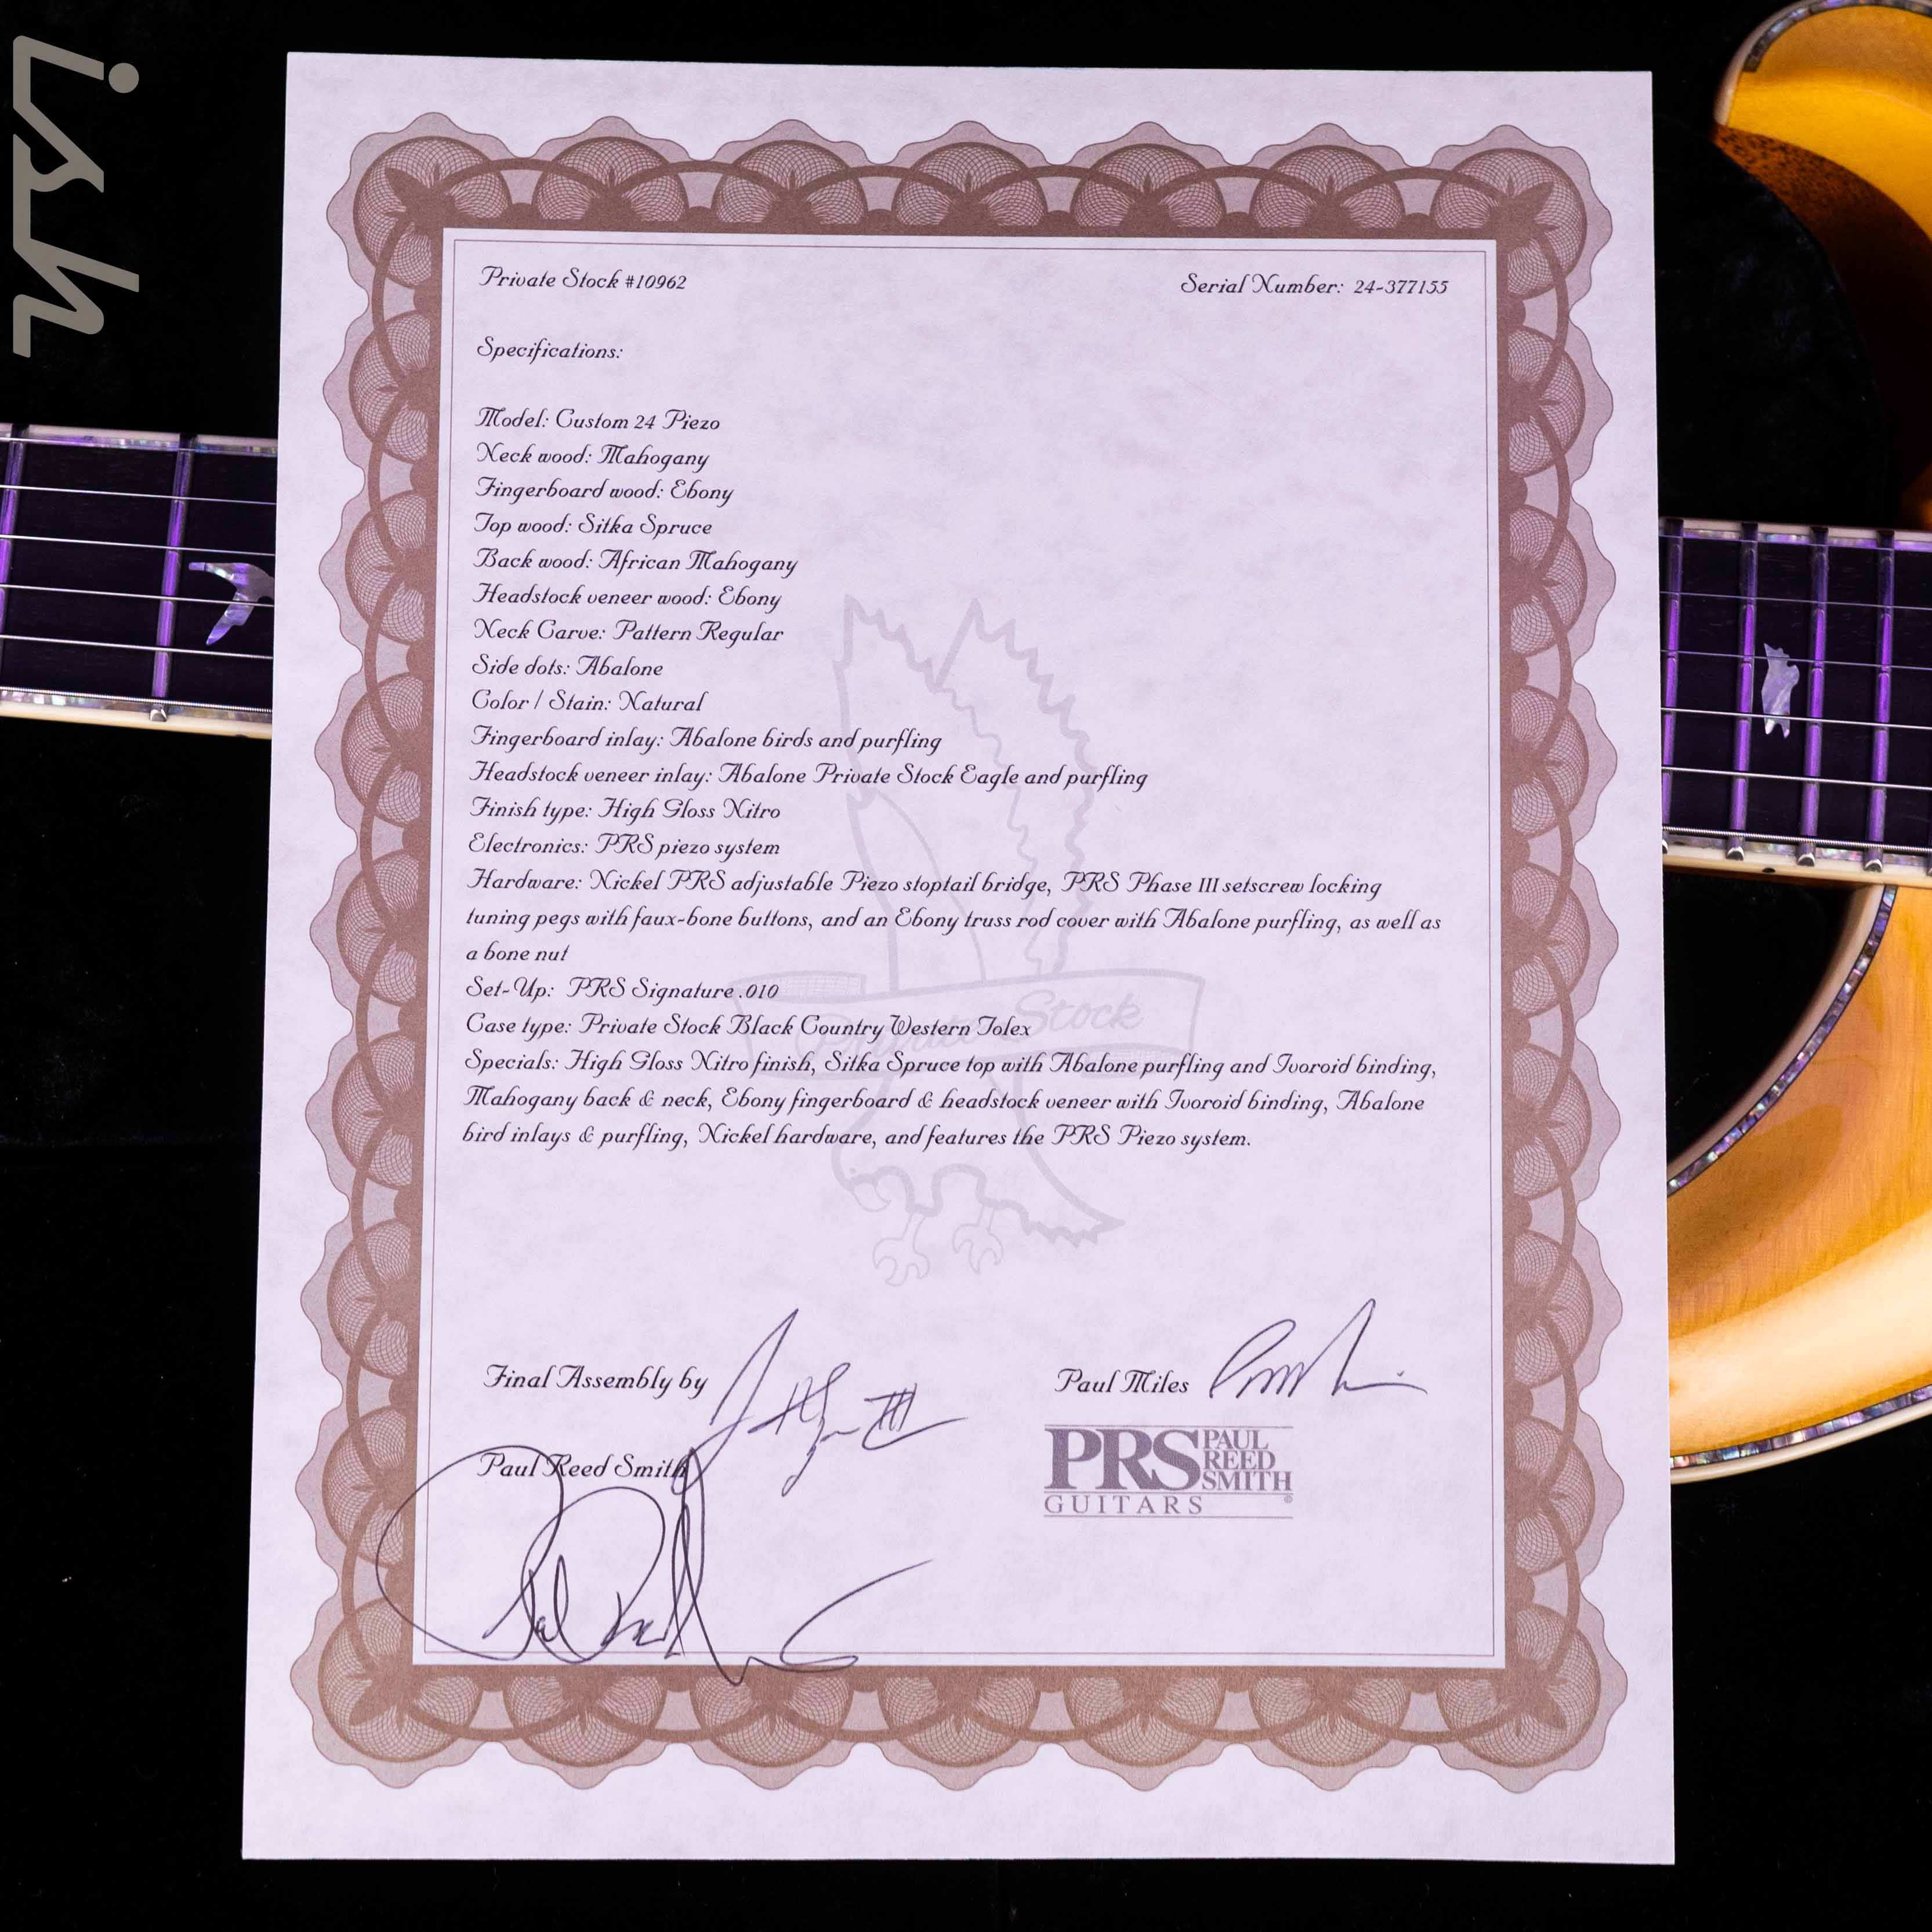 ish
Private Stock #10962
Serial Number: 24-377155
Specifications:
Model: Custom 24 Piezo
Neck wood: Mahogany
Fingerboard wood: Ebony
Top wood: Sitka Spruce
Back wood: African Mahogany
Headstock veneer wood: Ebony
Neck Carve: Pattern Regular
Side dots: Abalone
Color / Stain: Natural
Fingerboard inlay: Abalone birds and purfling
Headstock veneer inlay: Abalone Private Stock Eagle and purfling
Finish type: High Gloss Nitro
Electronics: PRS piezo system
Hardware: Nickel PRS adjustable Piezo stoptail bridge, PRS Phase III setscrew locking
tuning pegs with faux-bone buttons, and an Ebony truss rod cover with Abalone purfling, as well as
a bone nut
Set-Up: PRS Signature .010
Case type: Private Stock Black Country Western Tolex
Specials: High Gloss Nitro finish, Sitka Spruce top with Abalone purfling and Ivoroid binding,
Mahogany back & neck, Ebony fingerboard & headstock veneer with Ivoroid binding, Abalone
bird inlays & purfling, Nickel hardware, and features the PRS Piezo system.
Private Stock
Final Assembly by
Paul Miles
Paul Reed Smith
PRS PAUL
REED
SMITH
GUITARS